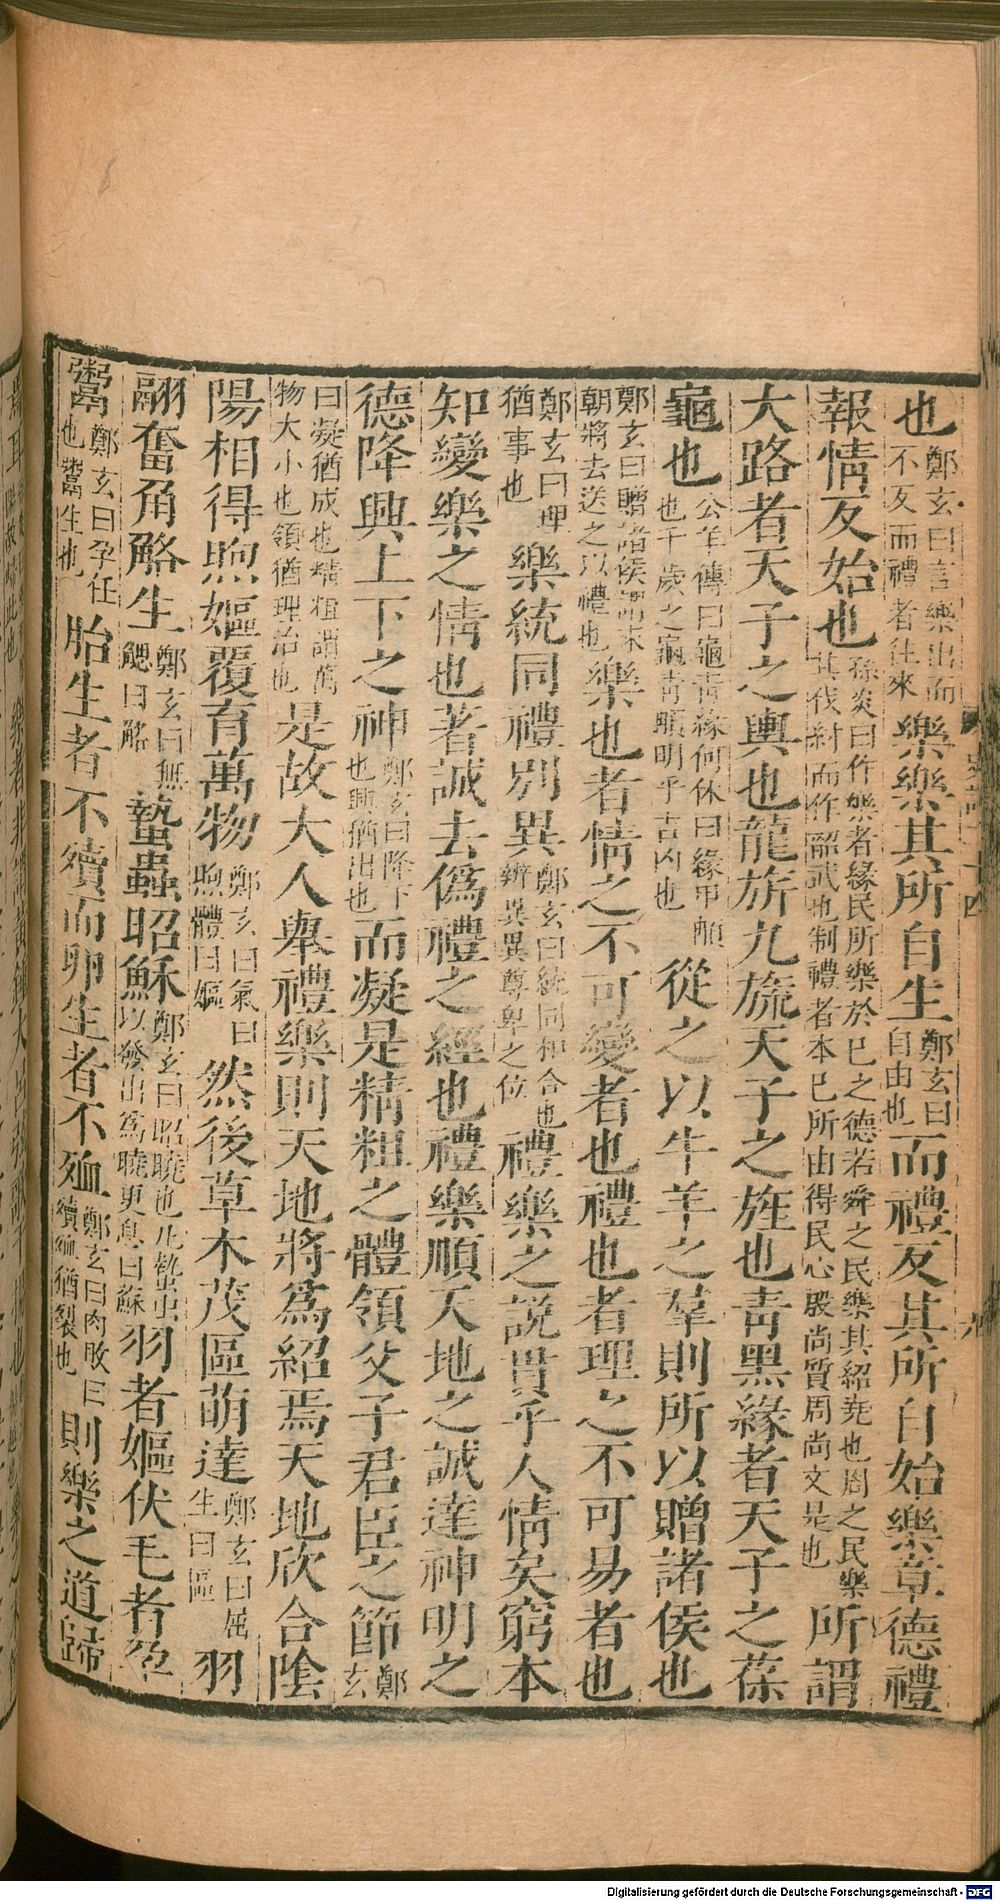 也鄭玄曰言樂出而不反而禮者往來樂樂其所自生鄭玄曰自由也而禮反其所自始樂章德禮
報情反始也孫炎曰作樂者緣民所樂於己之德若舜之民樂其紹堯也周之民樂其伐紂而作韶武也制禮者本己所由得民心殷尚質周尚文是也所謂
大路者天子之輿也龍旂九旒天子之旌也青黑緣者天子之葆
龜也公羊傳曰龜青緣何休曰緣甲䫇也千歲之龜青䫇明乎吉凶也從之以牛羊之羣則所以贈諸侯也
鄭玄曰贈諸侯謂來朝將去送之以禮也樂也者情之不可變者也禮也者理之不可易者也
鄭玄曰理猶事也樂統同禮別異鄭玄曰統同和合也辨異異尊卑之位禮樂之說貫乎人情矣窮本
知變樂之情也著誠去偽禮之經也禮樂順天地之誠達神明之
德降興上下之神鄭玄曰降下也興猶出也而凝是精粗之體領父子君臣之節鄭玄
曰凝猶成也精粗謂萬物大小也領猶理治也是故大人舉禮樂則天地將為紹焉天地欣合陰
陽相得煦嫗覆育萬物鄭玄曰氣曰煦體曰嫗然後草木茂區萌達鄭玄曰屈生曰區羽
翮奮角觡生鄭玄曰無䚡曰觡蟄蟲昭穌鄭玄曰昭曉也凡蟄蟲以發出為曉更息曰蘇羽者嫗伏毛者孕
鬻鄭玄曰孕任也鬻生也胎生者不殰而卵生者不殈鄭玄曰內敗曰殰殈猶裂也則樂之道歸
史記二十四
Digitalisierung gefördert durch die Deutsche Forschungsgemeinschaft - DFG